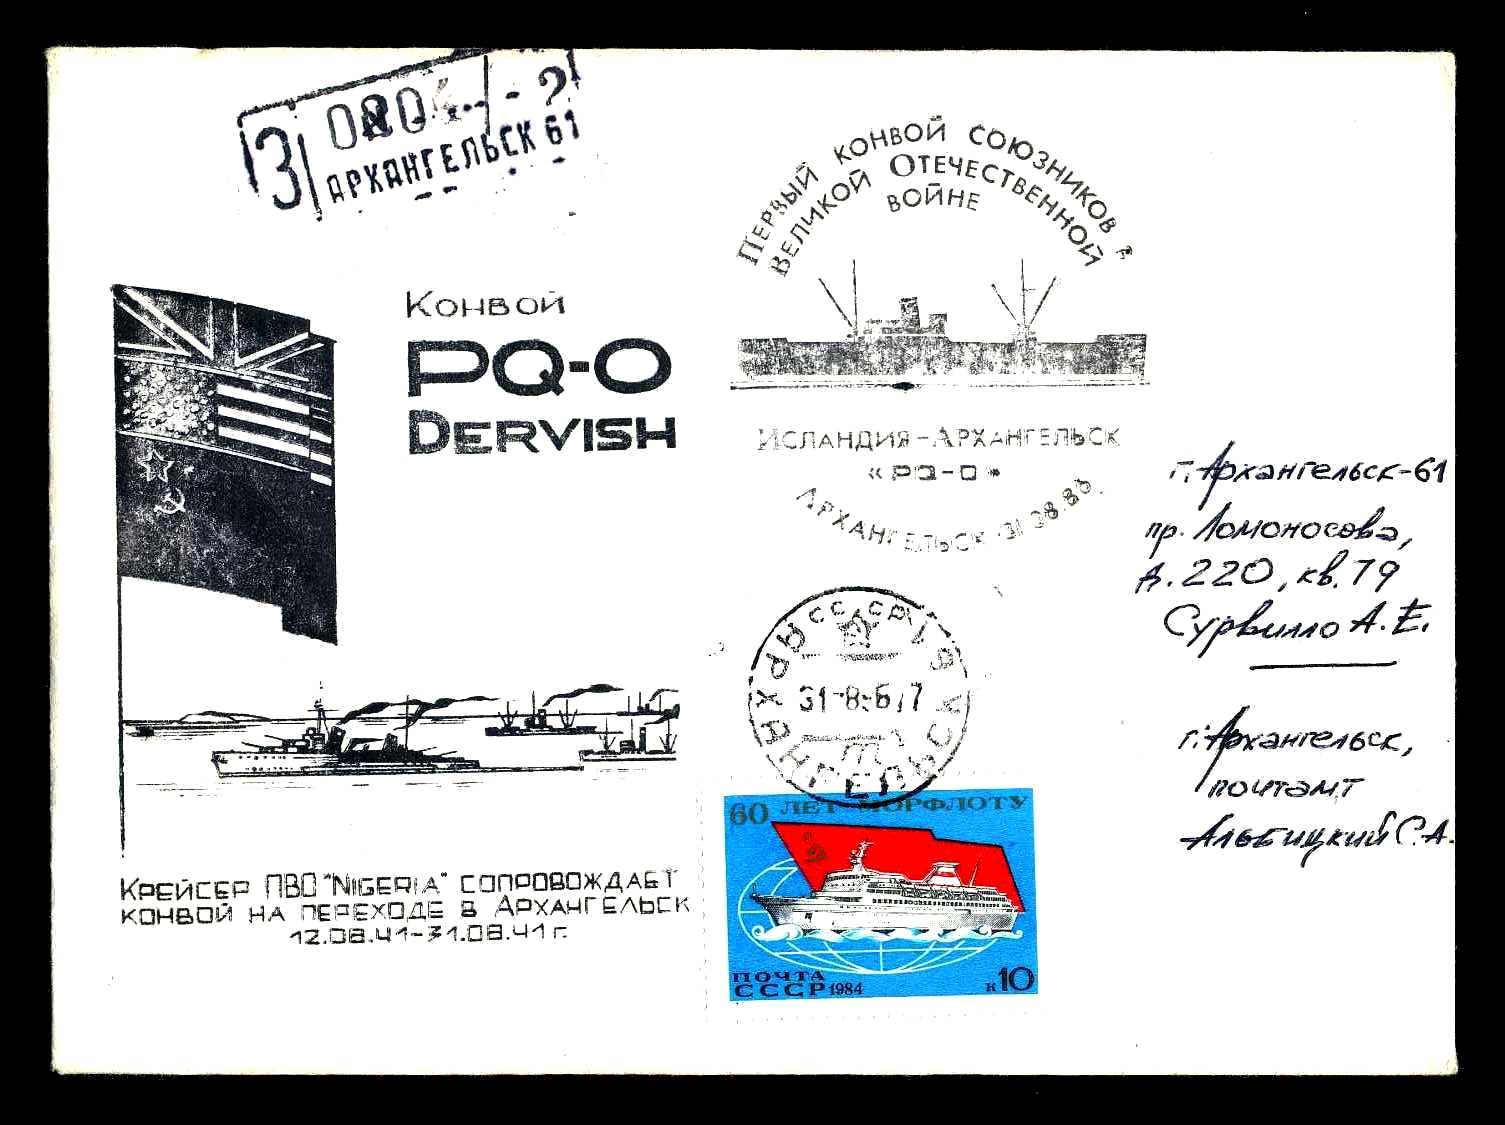 З 0804
АРХАНГЕЛЬСК 61
ПЕРВЫЙ КОНВОЙ СОЮЗНИКОВ В
ВЕЛИКОЙ ОТЕЧЕСТВЕННОЙ
ВОЙНЕ
КОНВОЙ
PQ-O
DERVISH
ИСЛАНДИЯ-АРХАНГЕЛЬСК
«PQ-O»
АРХАНГЕЛЬСК 31.08.86
г. Архангельск-61
пр. Ломоносова,
д. 220, кв. 79
Сурвилло А. Е.
СССР
АРХАНГЕЛЬСК
31-8-
г. Архангельск,
почтамт
Альбицкий С.А.
60 ЛЕТ МОРФЛОТУ
ПОЧТА
СССР 1984
к 10
КРЕЙСЕР ПВО "NIGERIA" СОПРОВОЖДАЕТ
КОНВОЙ НА ПЕРЕХОДЕ В АРХАНГЕЛЬСК
12.08.41-31.08.41 г.